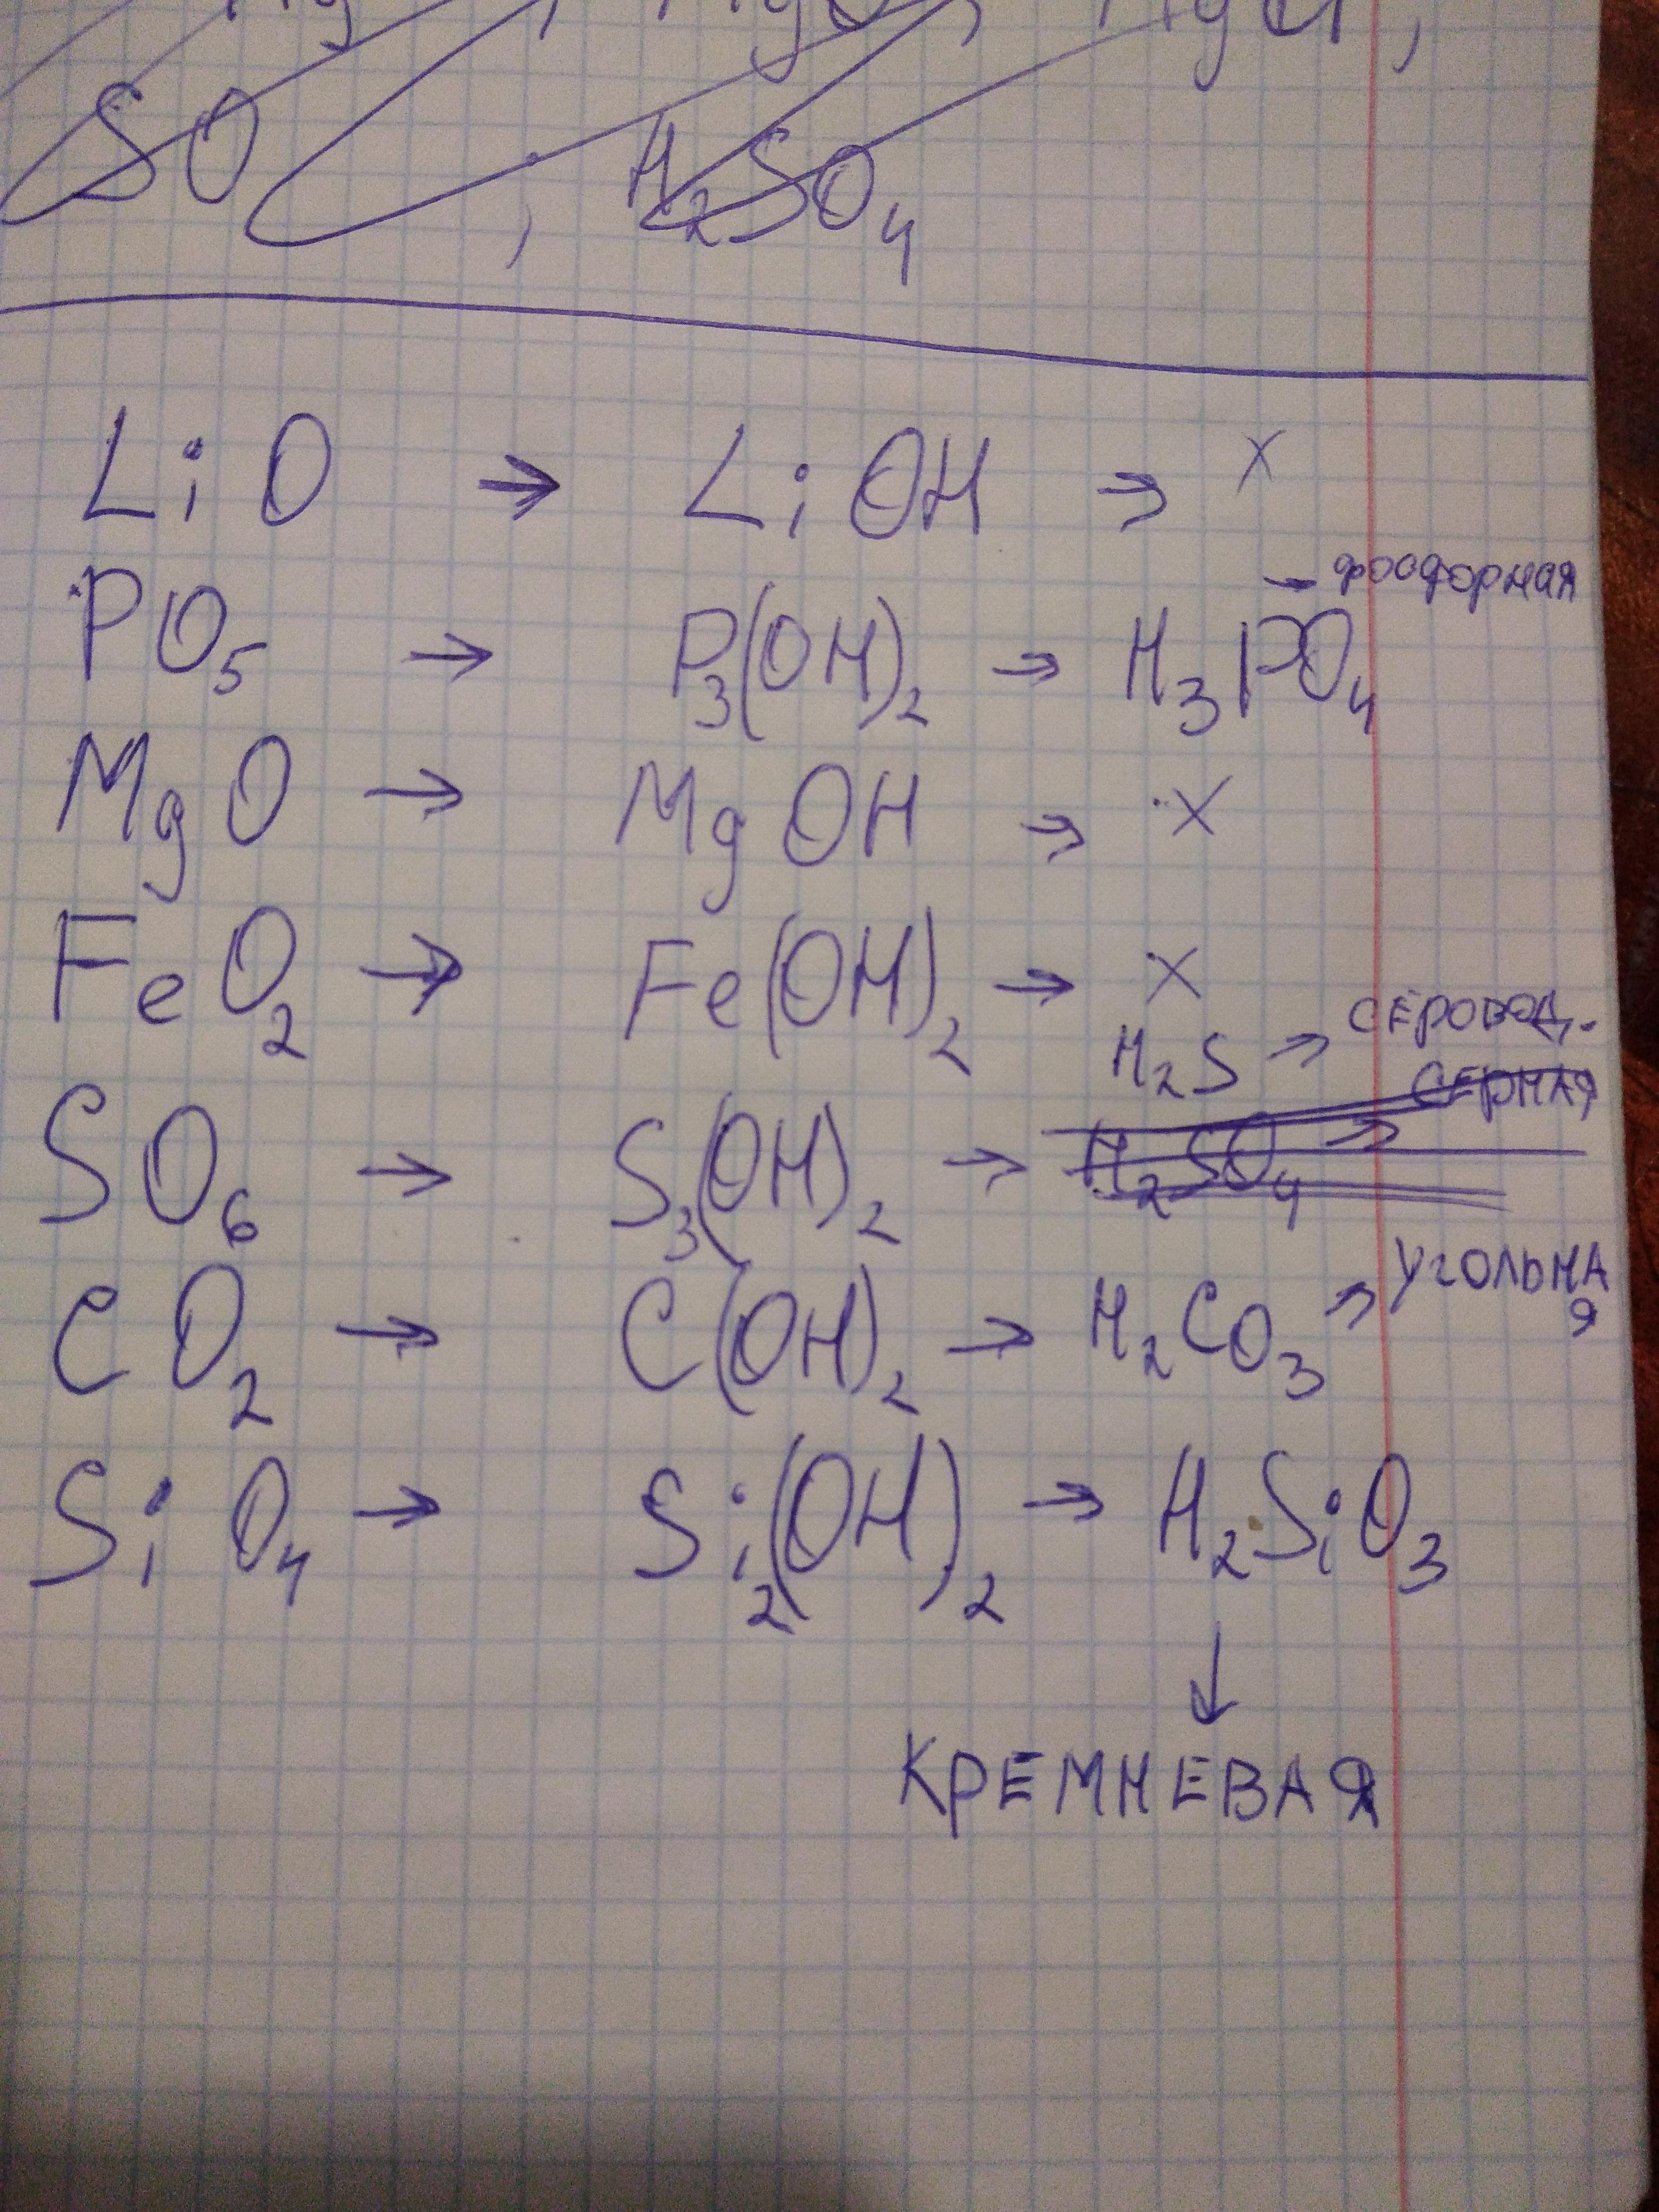 SO , H₂SO₄
LiO → LiOH → X
→ фосфорная
PO₅ → P₃(OH)₂ → H₃PO₄
MgO → MgOH → X
FeO₂ → Fe(OH)₂ → X
H₂S → СЕРОВОД.
СЕРНАЯ
SO₆ → S₃(OH)₂ → H₂SO₄ →
CO₂ → C(OH)₂ → H₂CO₃ → УГОЛЬНАЯ
SiO₄ → Si₂(OH)₂ → H₂SiO₃
↓
КРЕМНЕВАЯ